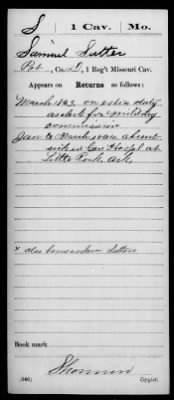 S | 1 Cav. | Mo.
Samuel Sutter
Pvt., Co. D, 1 Reg't Missouri Cav.
Appears on Returns as follows:
March 1863, on extra duty
as clerk for military
commission
Jan to March 1864 absent
sick in Gen Hospl at
Little Rock Ark
* also borne as Sutton
Book mark:
Shannon
(546) Copyist.